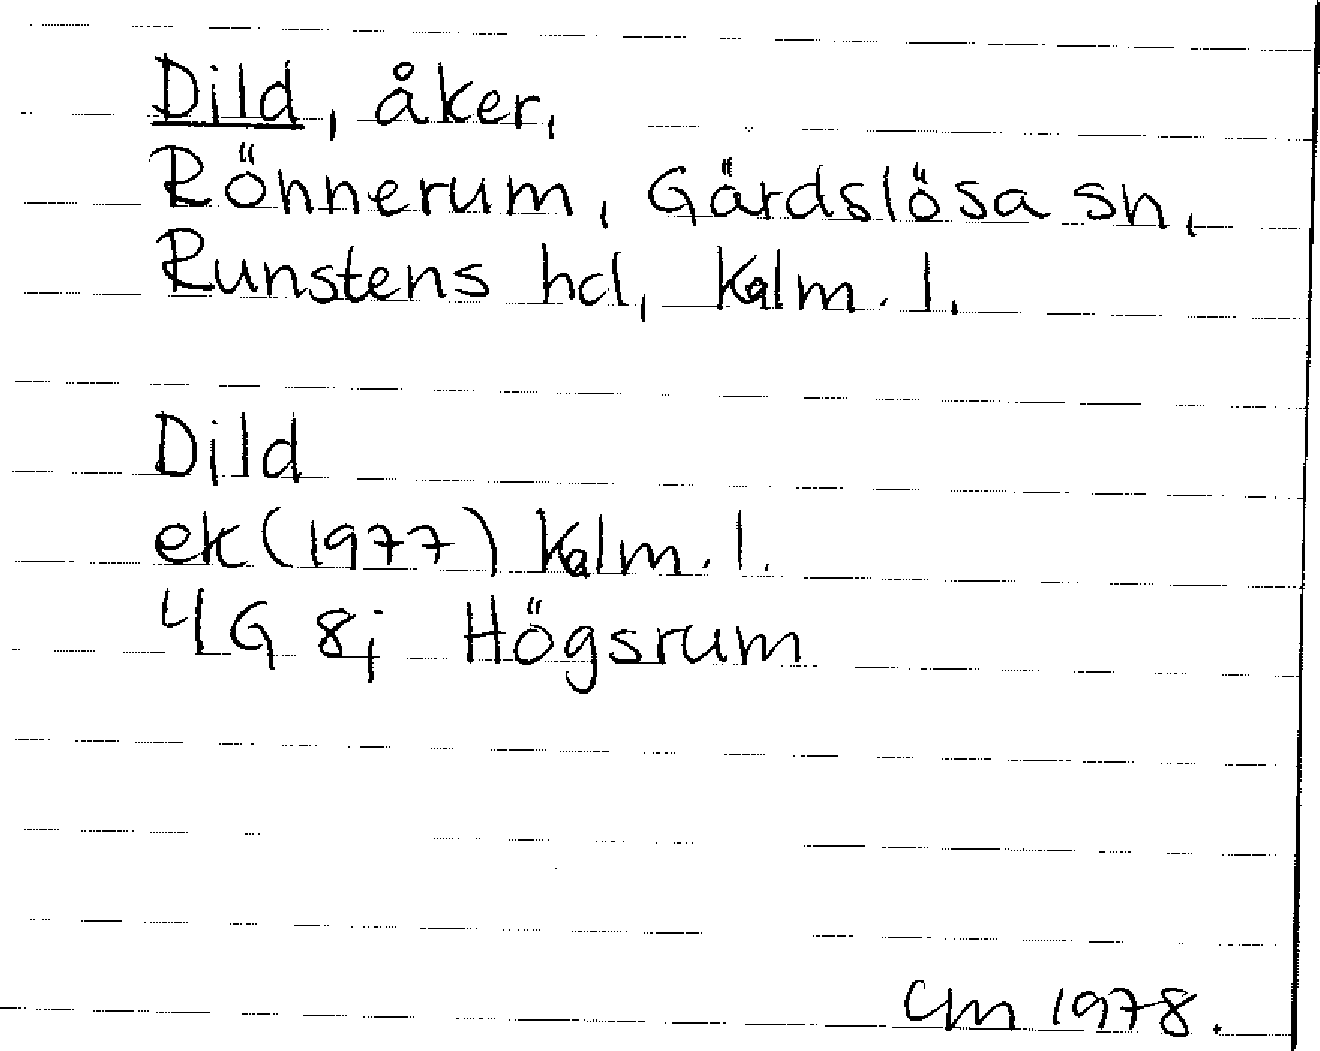 Dild, åker,
Röhnerum, Gärdslösa sn,
Runstens hd, Kalm. l.
Dild
ek (1977) Kalm. l.
4G 8j Högsrum
CM 1978.